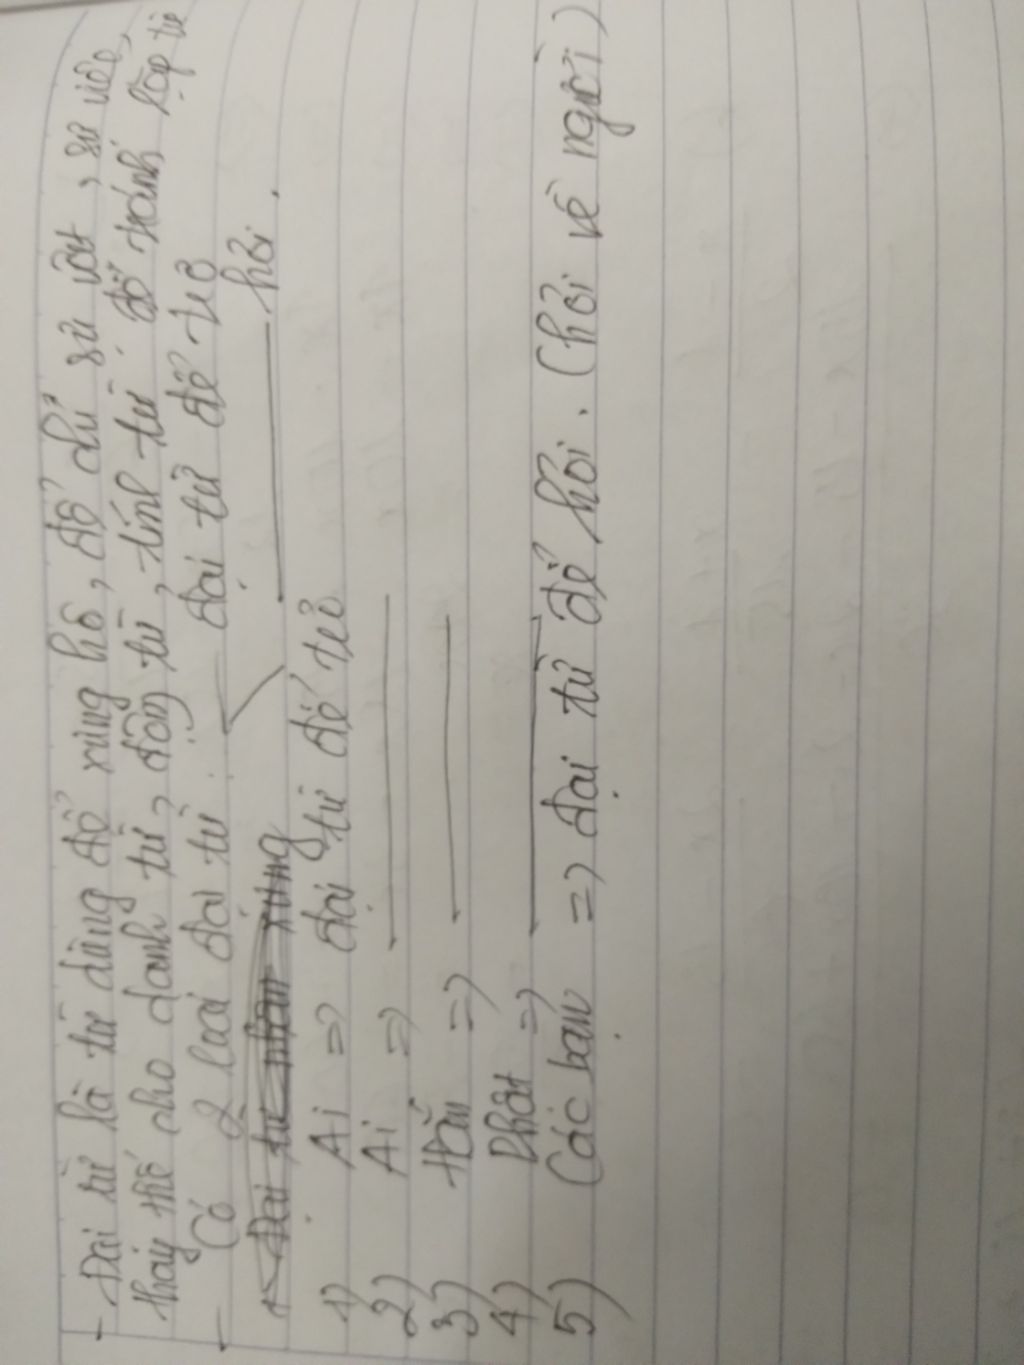 - Đại từ là từ dùng để xưng hô, để chỉ sự vật, sự việc,
thay thế cho danh từ, động từ, tính từ để tránh lặp từ
- Có 2 loại đại từ đại từ để trỏ
hỏi.
1) Ai => đại từ để trỏ
2) Ai =>
3) Hắn =>
4) =>
5) Các bạn => đại từ để hỏi. (hỏi về người)